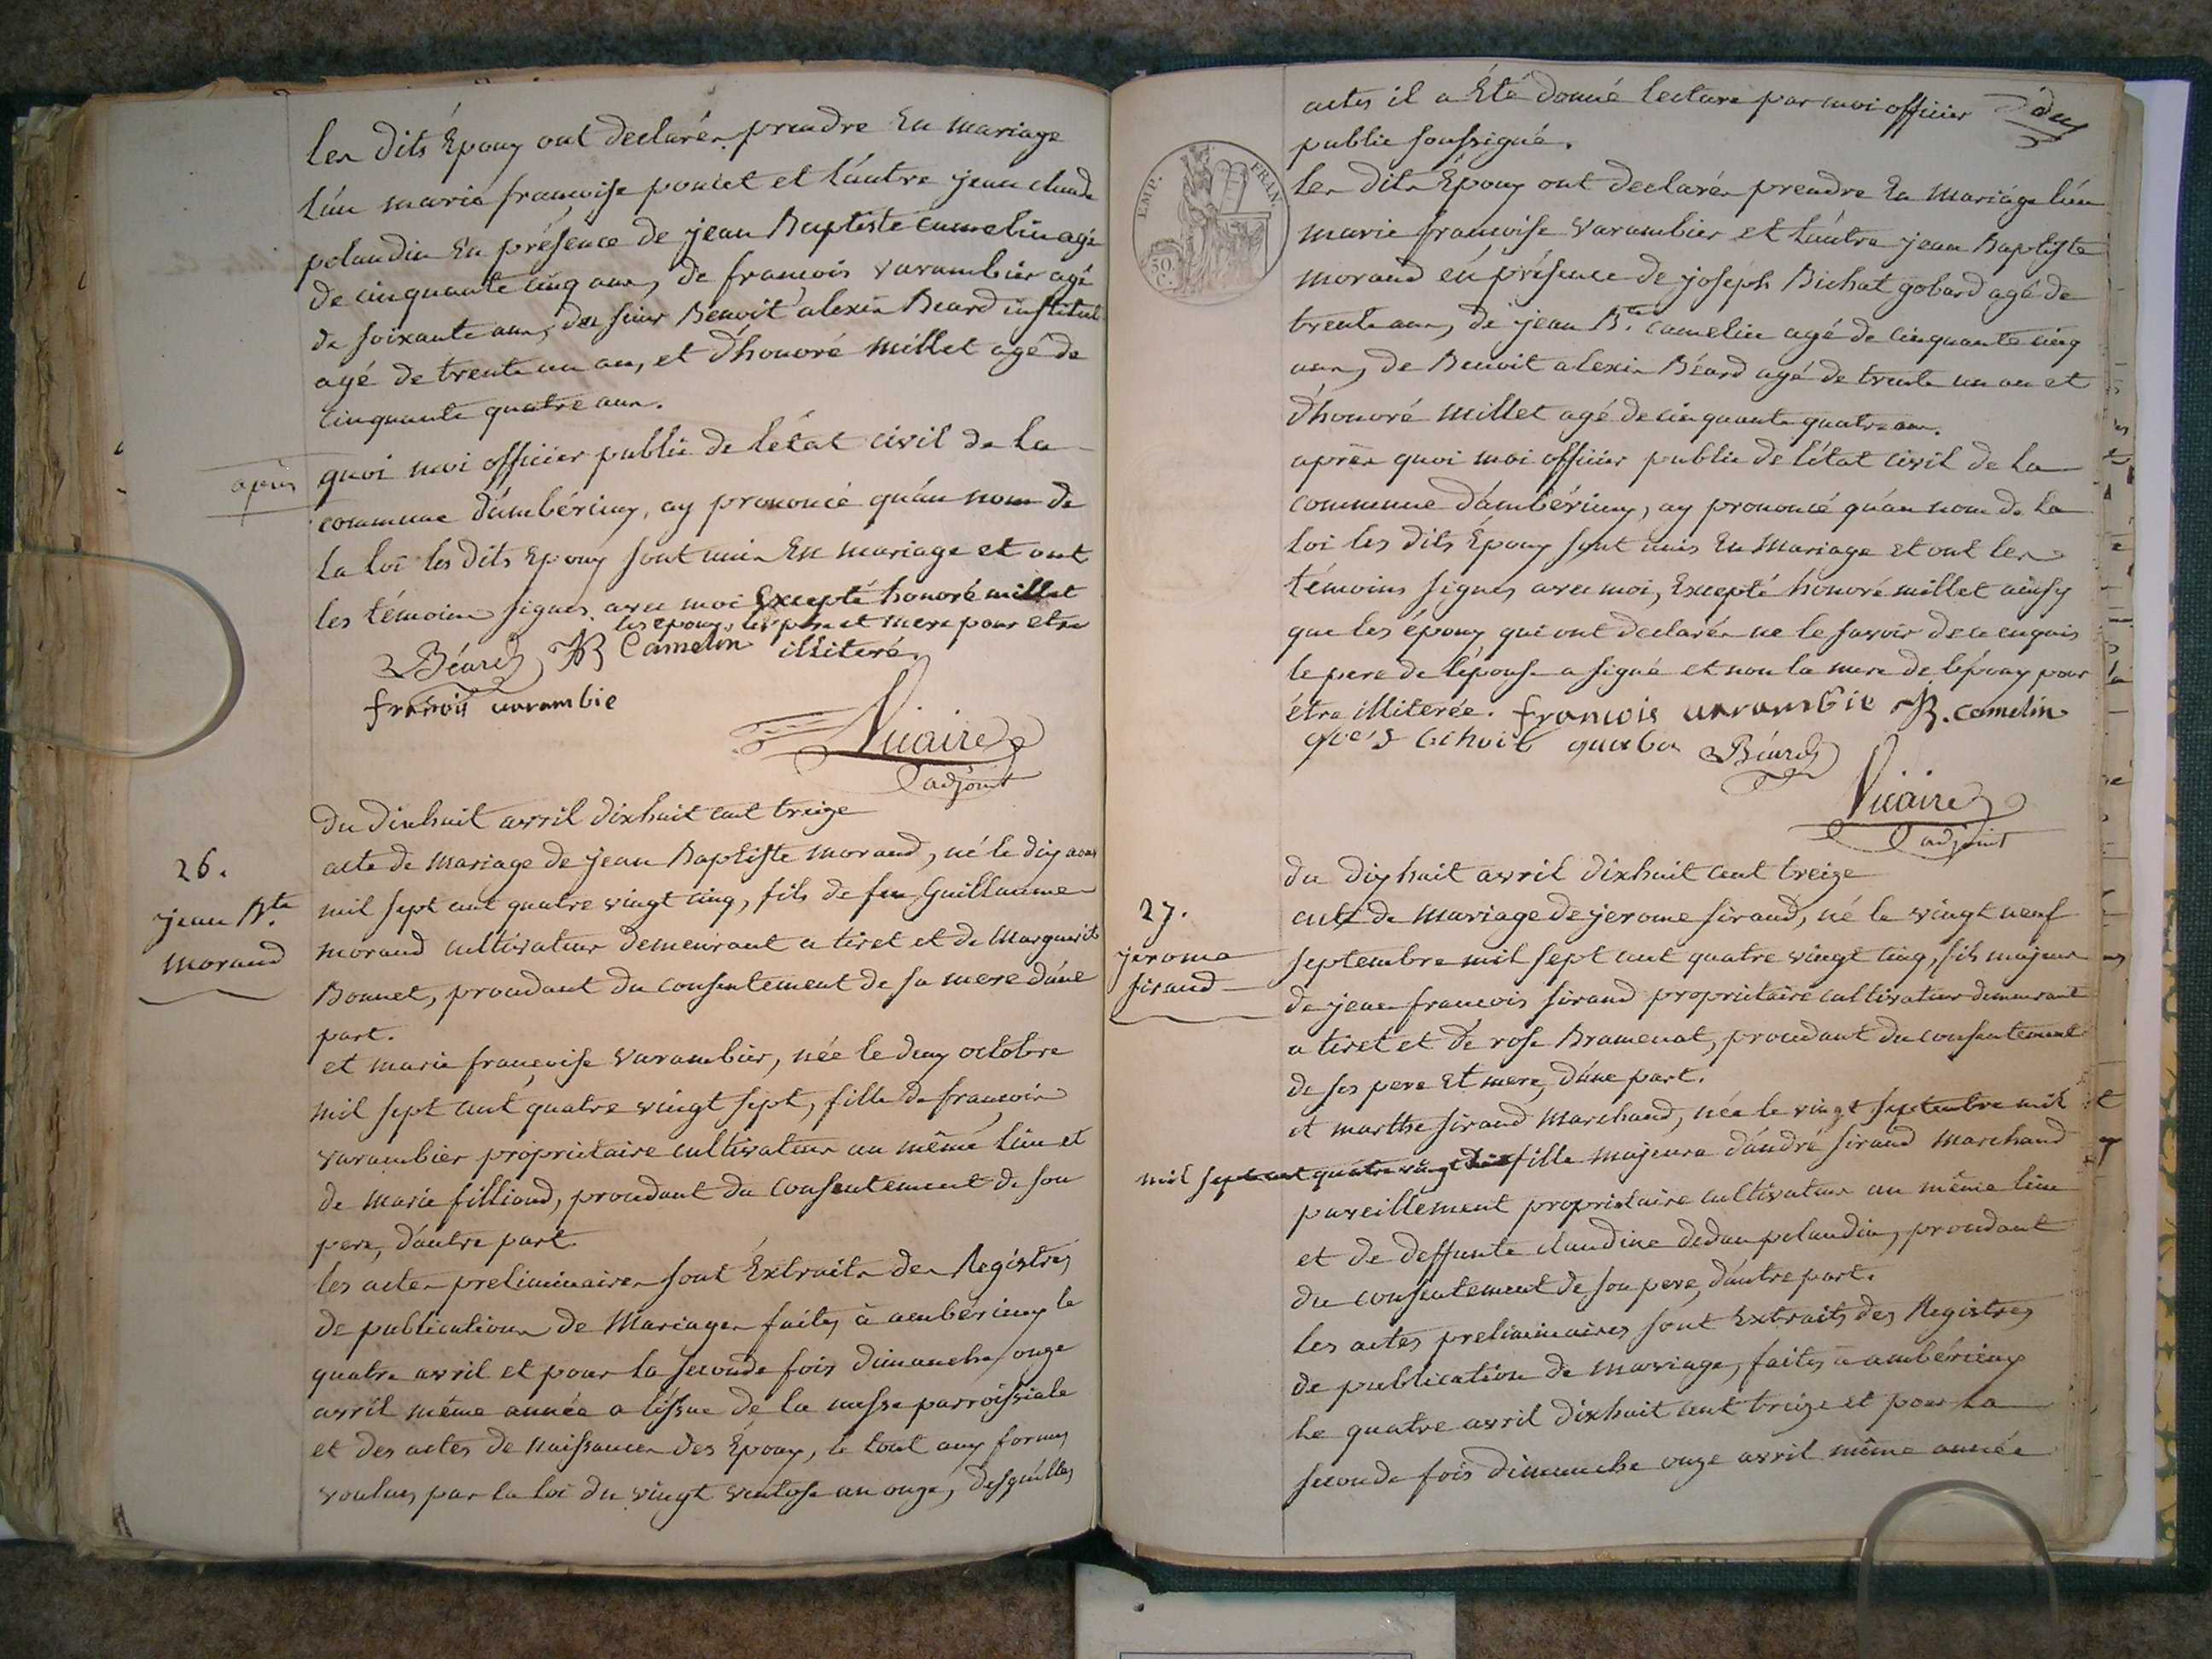 les dits Époux ont declarés prendre En mariage
l'un marie francoise poncet et l'autre jean claude
polandin En présence de jean Baptiste camelin agé
de cinquante cinq ans, de francois varambier agé
de soixante ans, du sieur Benoit alexis Beard institut
agé de trente un an, et d'honoré Millet agé de
cinquante quatre ans.
après quoi moi officier public de l'état civil de la
commune d'ambérieux, ay prononcé qu'au nom de
la loi les dits Epoux sont unis En mariage et ont
les témoins signés avec moi Excepté honoré millet
les epoux, les pere et mere pour etre
Béard JB Camelin illiteré.
francois varambie
Vicaire
adjoint
du dixhuit avril dixhuit cent treize
26.
jean Bte.
Morand
acte de Mariage de jean Baptiste Morand, né le dix aout
mil sept cent quatre vingt cinq, fils de feu Guillaume
morand cultivateur demeurant a tiret et de Marguerite
Bonnet, procedant du consentement de sa mere d'une
part.
et marie francoise Varambier, née le deux octobre
mil sept cent quatre vingt sept, fille de francois
varambier propriétaire cultivateur au même lieu et
de Marie filliond, procedant du consentement de son
pere, d'autre part.
les actes preliminaires sont Extraits des Registres
de publications de Mariages faites à ambérieux le
quatre avril et pour la seconde fois dimanche onze
avril même année a l'issue de la messe parroissiale
et des actes de naissances des Époux, le tout aux formes
voulues par la loi du vingt ventose an onze, desquelles
actes il a Été donné lecture par moi officier
public soussigné.
EMP. FRAN
50 C.
les dits Époux ont declarés prendre En Mariage l'un
marie francoise varambier et l'autre jean Baptiste
morand en présence de joseph Bichat gobard agé de
trente ans, de jean Bte. camelin agé de cinquante cinq
ans, de Benoit alexis Béard agé de trente un an et
d'honoré Millet agé de cinquante quatre ans.
après quoi moi officier public de l'état civil de la
commune d'ambérieux, ay prononcé qu'au nom de la
loi les dits Époux sont unis En Mariage et ont les
témoins signés avec moi, Excepté honoré millet ainsy
que les époux qui ont declarés ne le savoir de ce enquis
le pere de l'épouse a signé et non la mere de l'époux pour
étre illiterée. francois varambie JB. camelin
Béard
Vicaire
adjoint
du dix huit avril dixhuit cent treize
27.
jerome
sirand
acte de Mariage de jerome sirand, né le vingt neuf
septembre mil sept cent quatre vingt cinq, fils majeur
de jean francois sirand propriétaire cultivateur demeurant
a tiret et de rose Bramerat, procedant du consentement
de ses pere Et mere, d'une part.
et marthe sirand Marchand, née le vingt septembre mil
mil sept cent quatre vingt dix fille majeure d'andré sirand Marchand
pareillement propriétaire cultivateur au même lieu
et de deffunte claudine dedan polandin, procedant
du consentement de son pere, d'autre part.
les actes preliminaires sont Extraits des Registres
de publication de mariage, faites a ambérieux
le quatre avril dixhuit cent treize et pour la
seconde fois dimanche onze avril même année